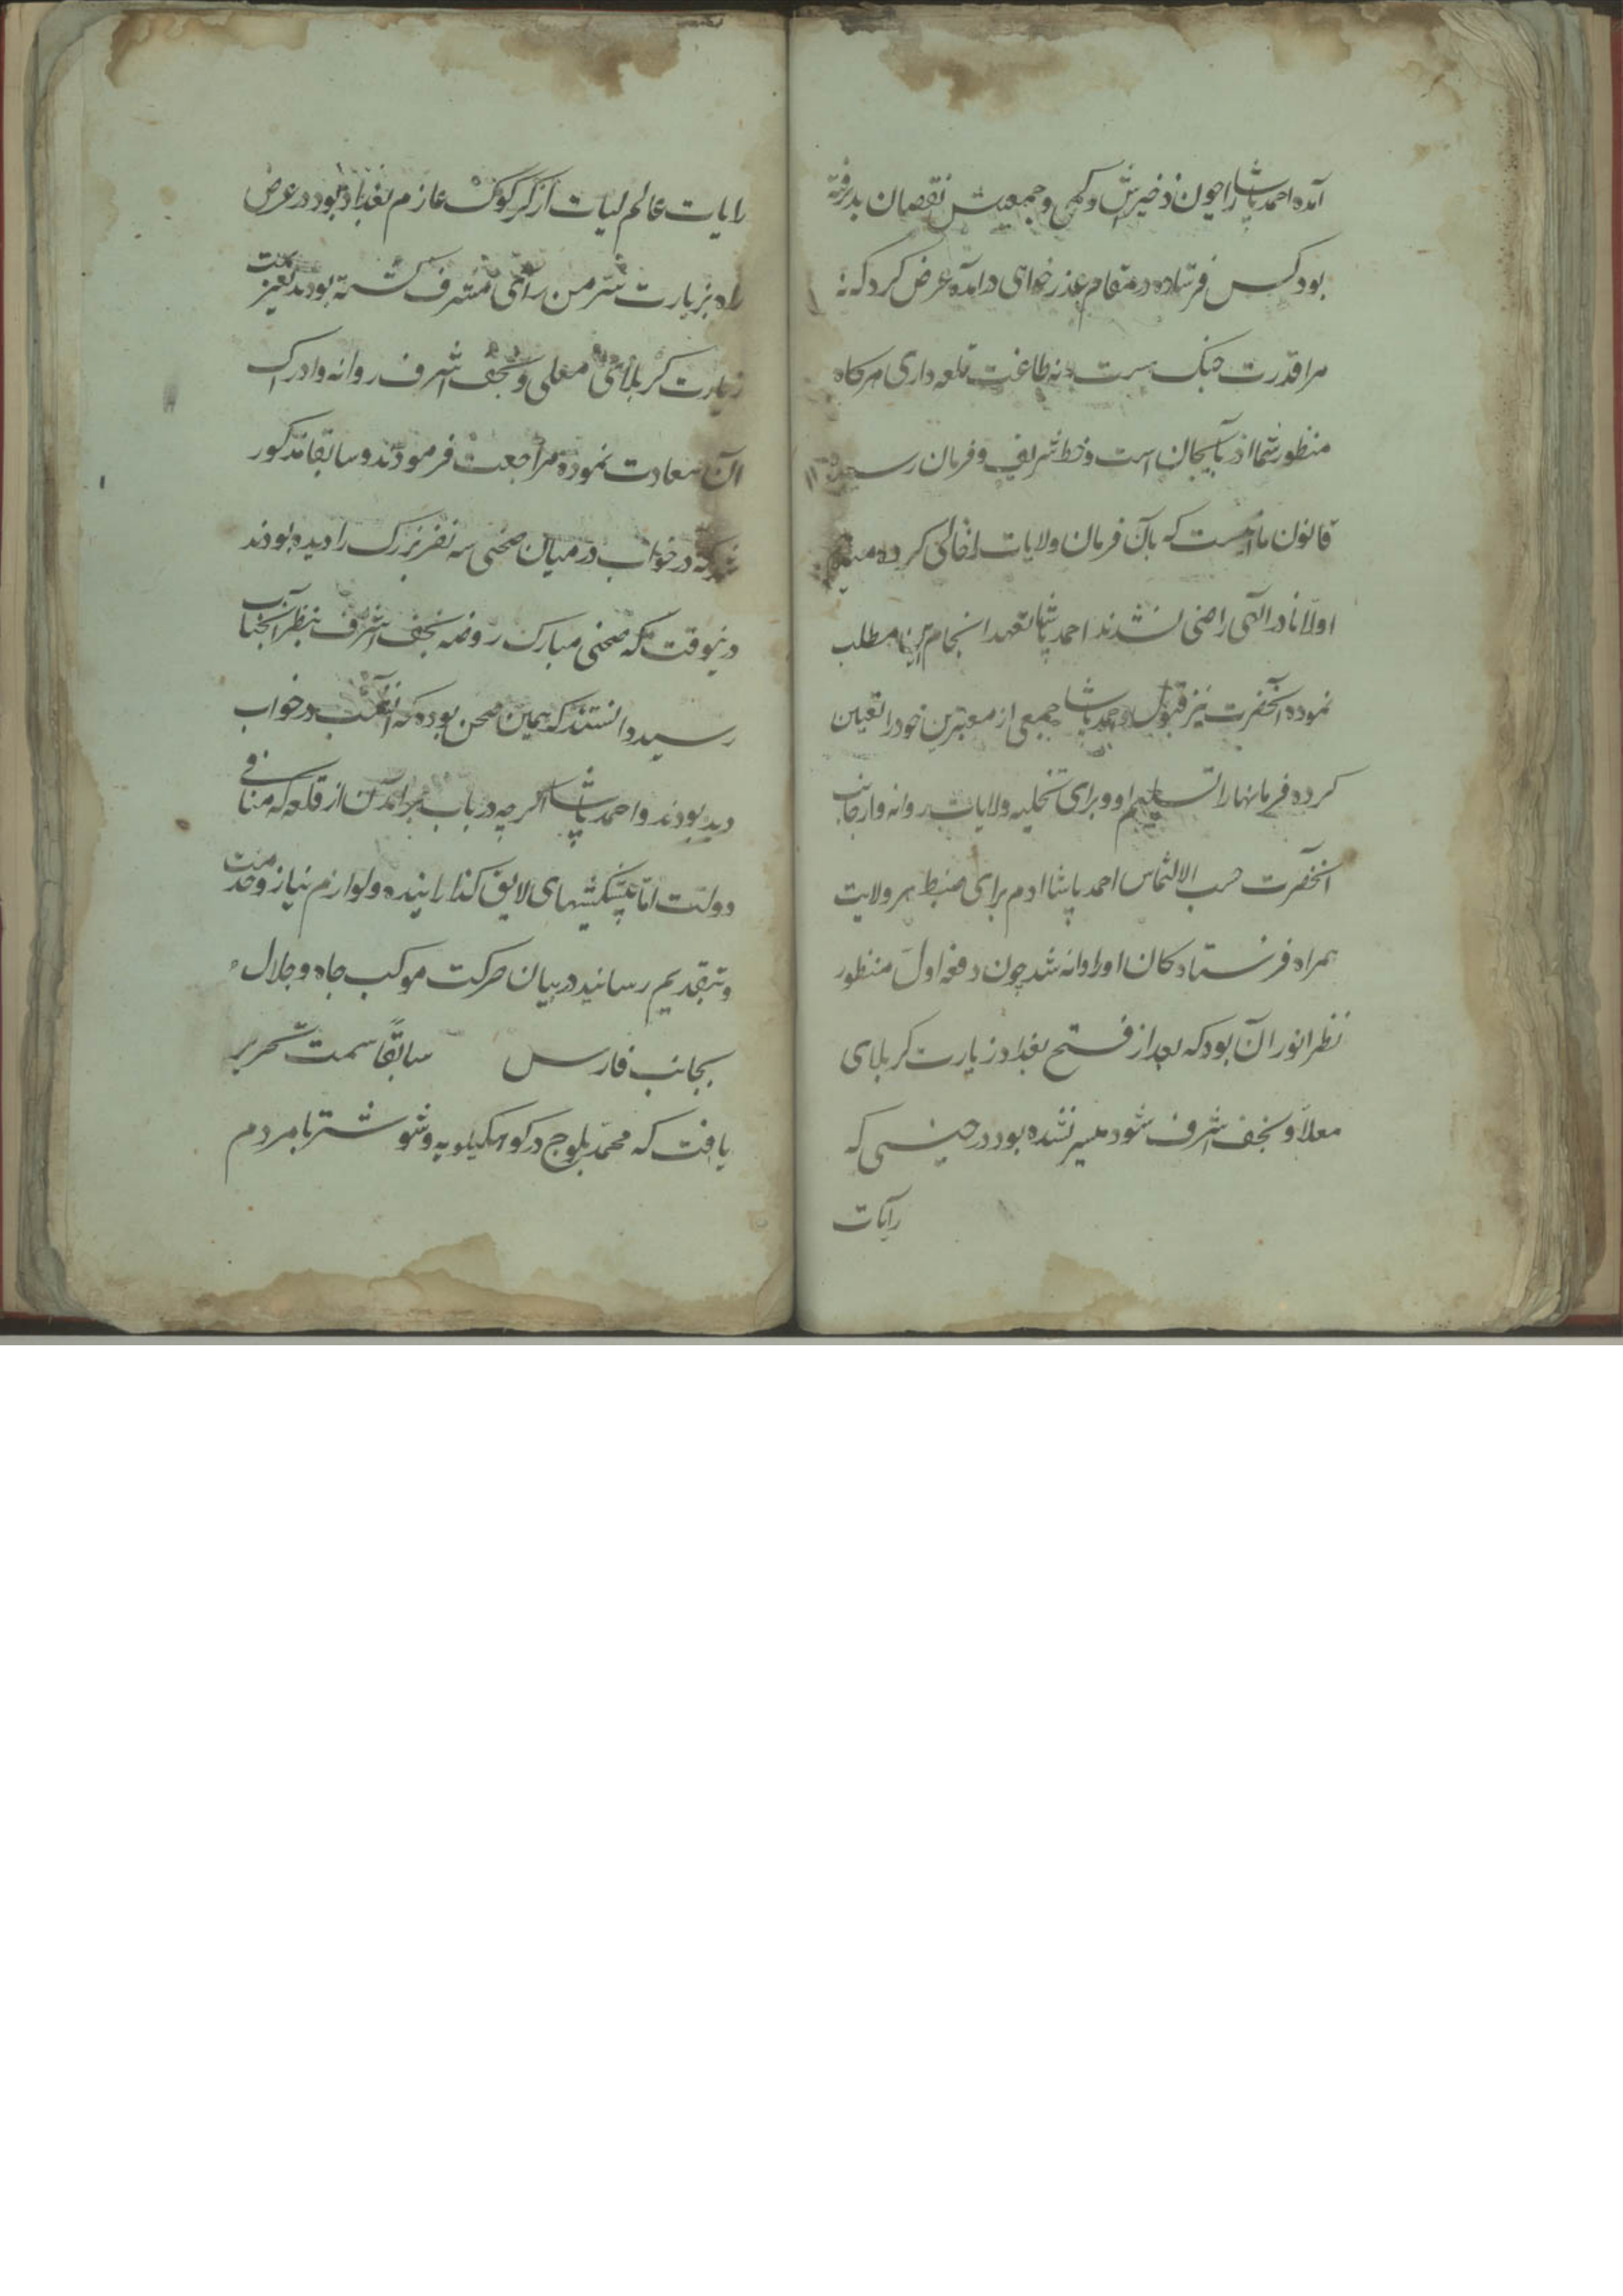 آمده احمد پاشا را چون ذخیرش و کمی و جمعیتش نقصان پذرفته
بود کس فرستاده در مقام عذر خواهی درامده عرض کرد که نه
مرا قدرت جنک هست و نه طاغت قلعه داری هر کاه
منظور شما اذربایجان است و خط شریف و فرمان رسیده
قانون ما هست که بآن فرمان ولایات را خالی کرده
اولا نادر الهی راضی نشدند احمد پاشا تعهد انجام این مطلب
نموده آنحضرت نیز قبول و احمد پاشا جمعی از معتبرین خود را تعین
کرده فرمانها را تسلیم او و برای تخلیه ولایات روانه و از جانب
آنحضرت حسب الالتماس احمد پاشا ادم برای ضبط هر ولایت
همراه فرستادکان او روانه شد چون دفعه اول منظور
نظر انور آن بود که بعد از فتح بغداد زیارت کربلای
معلا و نجف اشرف شود میسر نشده بود در حینی که
رایات
رایات عالم لیات از کرکوک عازم بغداد بود در عرض
راه بزیارت سر من رآی مشرف کشته بودند بعزیمت
زیارت کربلای معلی و نجف اشرف روانه و ادراک
آن سعادت نموده مراجعت فرمودند و سابقا مذکور
شد که در خواب در میان صحنی سه نفر بزرک را دیده بودند
درینوقت که صحنی مبارک روضه نجف اشرف بنظر آنجناب
رسید دانستند که همین صحن بوده که آنشب در خواب
دید بودند و احمد پاشا اکر چه در باب برامدن از قلعه که منافی
دولت اما پیشکشهای لایق کذارانیده و لوازم نیاز و خدمت
و بتقدیم رسانید در بیان حرکت موکب جاه و جلال
بجانب فارس سابقاً سمت تحریر
یافت که محمد بلوج در کوهکیلویه و شوشتر با مردم